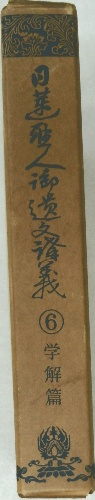 日蓮聖人御遺文講義
⑥
学解篇